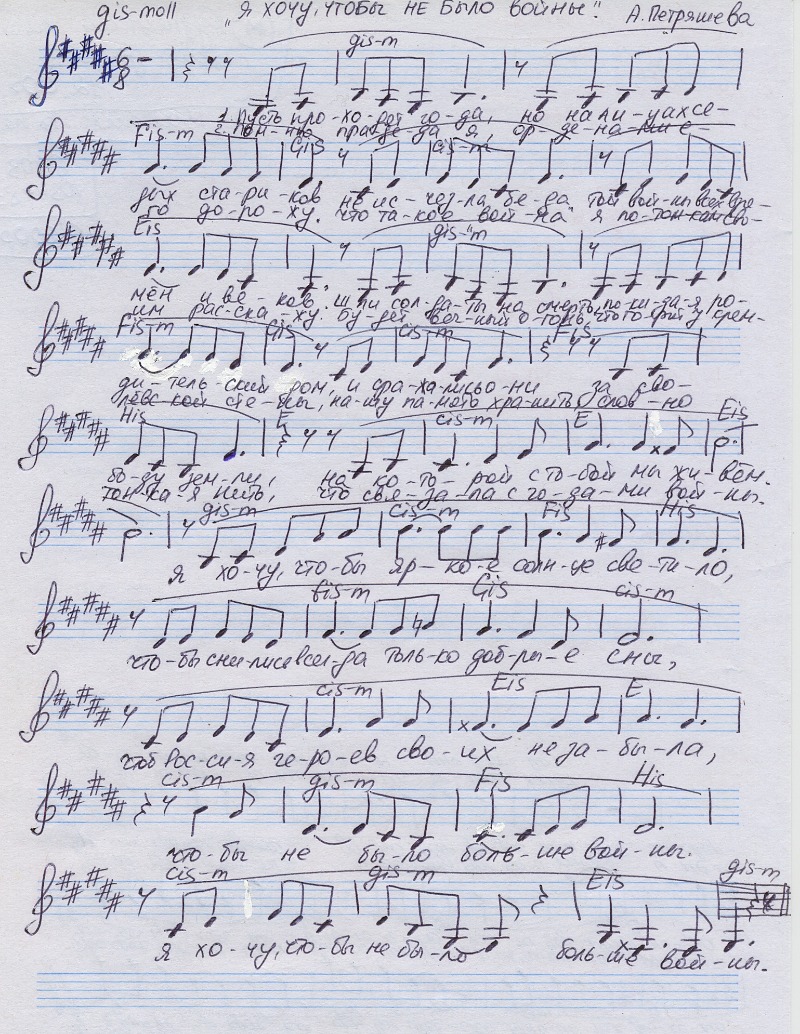 gis-moll „Я хочу, чтобы не было войны". А. Петряшева
gis-m
1. Пусть про-хо-дят го-да, но на ли-цах се-
2. прадеда я, ор-де-на
Fis-m Gis cis-m
дых ста-ри-ков не ис-чез-ла бе-да той вой-ны всех вре-
до-ро-жу. что та-ко-е вой-на я по-том
Eis gis-m
мён и ве-ков. Шли сол-да-ты на смерть, по-ки-да-я ро-
им рас-ска-жу. бу-дет веч-ный о-гонь, что го-рит у крем-
Fis-m Gis cis-m
ди-тель-ский дом, и сра-жались о-ни за сво-
лёвс-кой сте-ны, на-шу па-мять хра-нить, слов-но
His E cis-m E Eis
бо-ду зем-ли, на ко-то-рой с то-бой мы жи-вём.
тон-ка-я нить, что свя-за-ла с го-да-ми вой-ны.
gis-m Cis-m Fis His
я хо-чу, что-бы яр-ко-е солн-це све-ти-ло,
fis-m Gis cis-m
что-бы сни-лись всег-да толь-ко доб-ры-е сны,
cis-m Eis E
чтоб Рос-си-я ге-ро-ев сво-их не за-бы-ла,
cis-m gis-m Fis His
что-бы не бы-ло боль-ше вой-ны.
cis-m gis-m Eis gis-m
я хо-чу, что-бы не бы-ло боль-ше вой-ны.